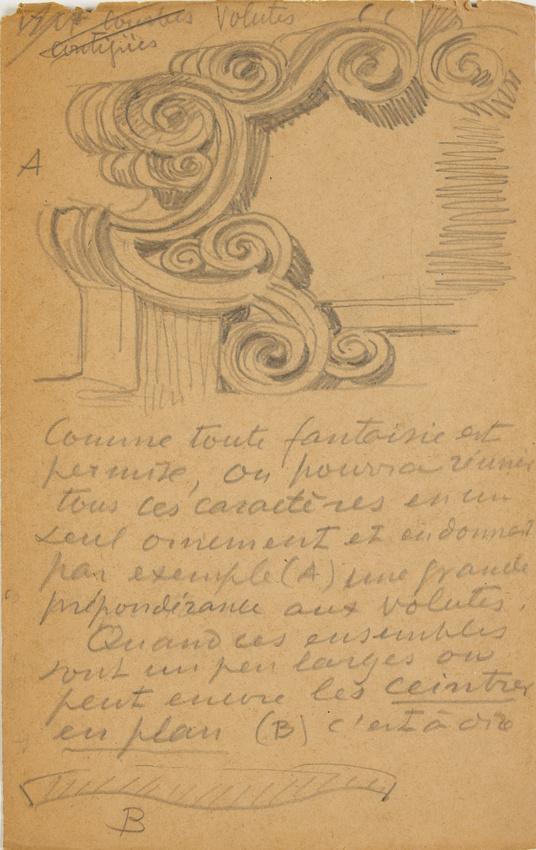 courbes Volutes
Contigües
A
Comme toute fantaisie est
permise, on pourra réunir
tous ces caractères en un
seul ornement et en donnant
par exemple (A) une grande
prépondérance aux volutes.
Quand ces ensembles
sont un peu larges on
peut encore les ceintrer
en plan (B) c'est à dire
B